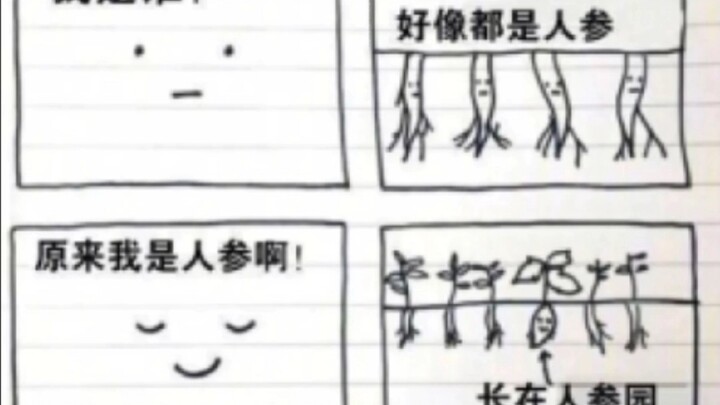 好像都是人参
原来我是人参啊！
长在人参园